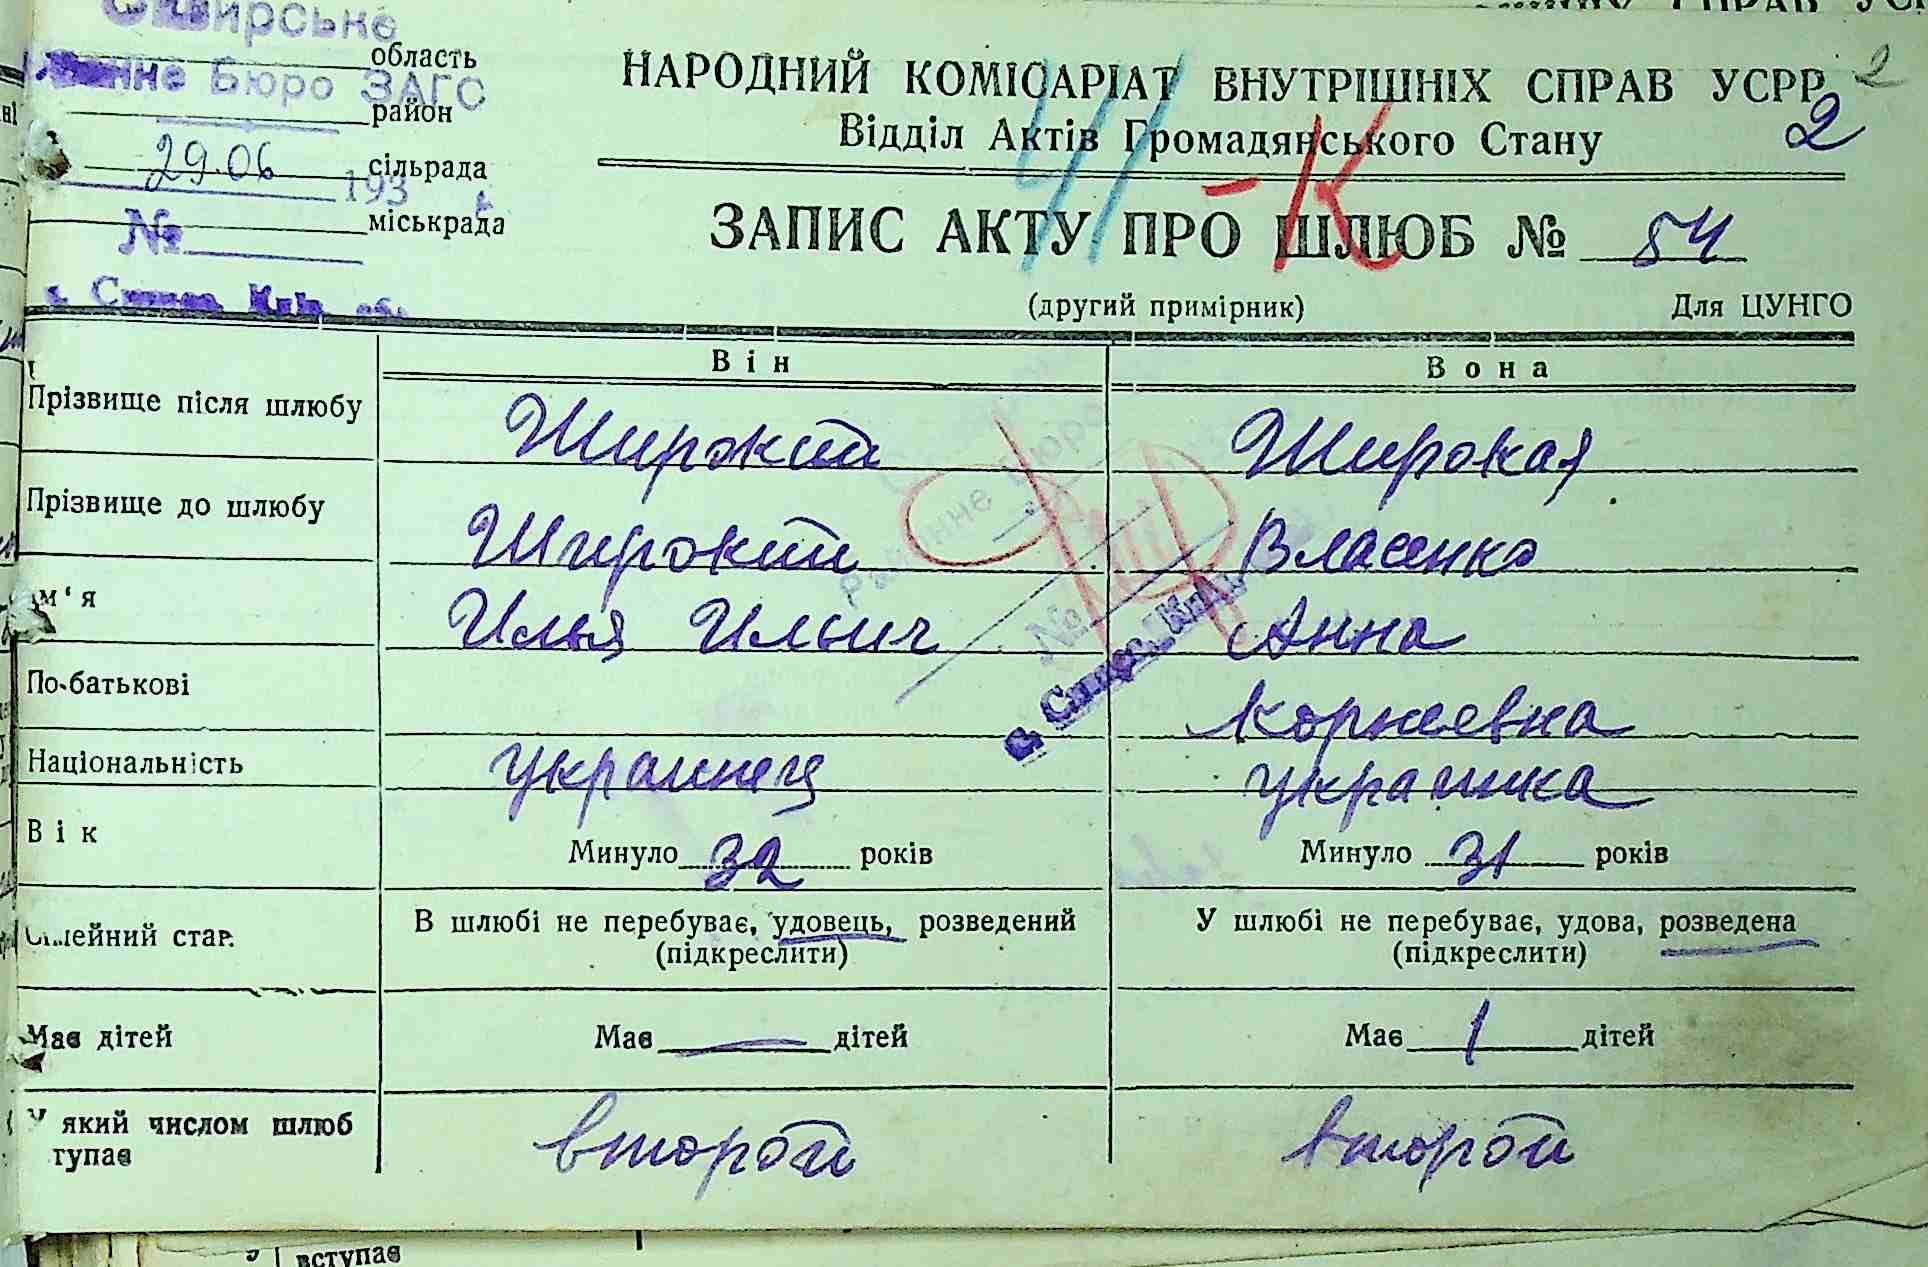 область
Бюро ЗАГС
район
29.06
сільрада
193
міськрада
№
НАРОДНИЙ КОМІСАРІАТ ВНУТРІШНІХ СПРАВ УСРР
2
Відділ Актів Громадянського Стану
2
-К
ЗАПИС АКТУ ПРО ШЛЮБ № 54
(другий примірник)
Для ЦУНГО
Він
Вона
Прізвище після шлюбу
Широкий
Широкая
Прізвище до шлюбу
Широкий
Власенко
ім'я
Илья Ильич
Анна
По-батькові
Корнеевна
Національність
украинец
украинка
Вік
Минуло 32 років
Минуло 31 років
стан
В шлюбі не перебуває, удовець, розведений
(підкреслити)
У шлюбі не перебуває, удова, розведена
(підкреслити)
Має дітей
Має — дітей
Має 1 дітей
У який числом шлюб
второй
второй
тупає
вступає